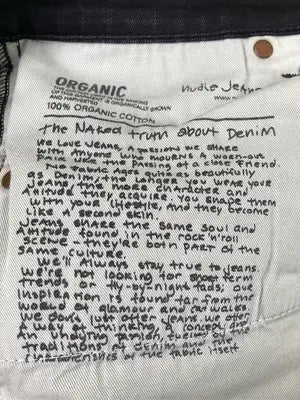 ORGANIC
THE COTTON USED IN THE MAKING
OF THIS GARMENT IS ORGANICALLY GROWN
AND HARVESTED
100% ORGANIC COTTON
Nudie Jeans
The Naked truth about Denim
We love Jeans, A passion we share
with Anyone who mourns A worn-out
pair like the passing of a close friend.
No fabric Ages quite as beautifully
as Denim. The longer you wear your
Jeans the more character and
Attitude they acquire. You shape them
with your lifestyle, And they become
like A second skin.
Jeans share the same soul and
Attitude found in the rock'n'roll
scene - they're both part of the
same culture.
We'll Always stay true to jeans.
We're not looking for short term
trends or fly-by-night fads; our
inspiration is found far from the
world of glamour and catwalks.
We don't just offer jeans. We offer
A way of thinking, A concept and
An unyielding passion, fuelled by the
traditions of denim and the
characteristics of the fabric itself